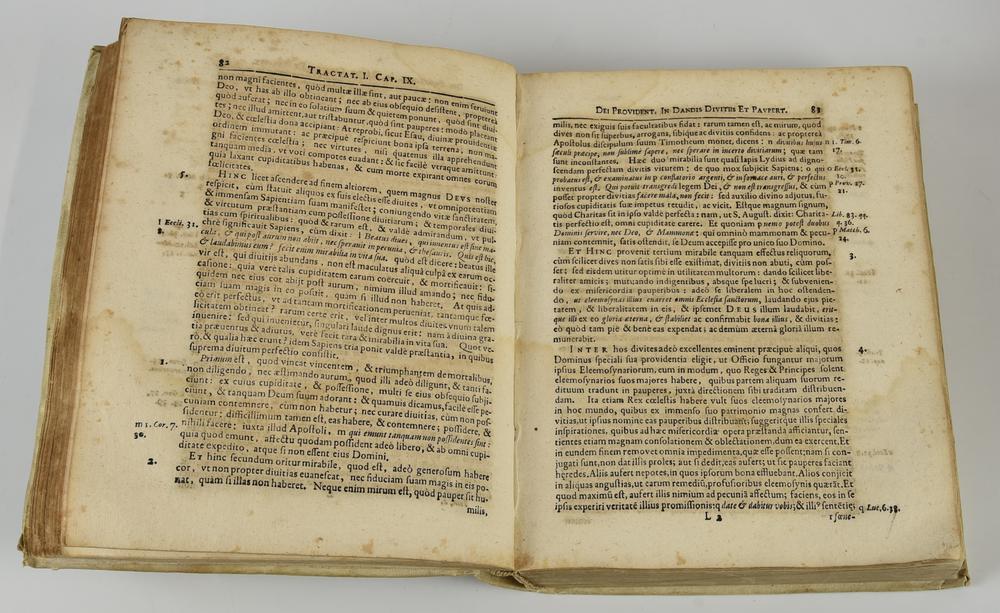 82
TRACTAT. I. CAP. IX.
non magni facientes, quòd multæ illæ sint, aut paucæ: non enim serviunt
Deo, vt has ab illo obtineant; nec ab eius obsequio desistent, propterea
quòd auferat; nec in eo solatium suum & quietem ponunt, quòd sint divi-
tes; nec illud amittent, aut tristabuntur, quòd sint pauperes: modo placeant
Deo, & cœlestia dona accipiant. At reprobi, sicut Esau, divinæ providentiæ
ordinem immutant: ac præcipuè respiciunt bona ipsa terrena, non ma-
gni facientes cœlestia; nec virtutes; nisi quatenus illa apprehendunt
tanquam media, vt voti compotes evadant; & sic facilè veraque amittunt:
quia laxant cupiditatibus habenas, & cum morte expirant omnes eorum
fœlicitates.
5.
HINC licet ascendere ad finem altiorem, quem magnus DEVS noster
respicit, cùm statuit aliquos ex suis electis esse divites, vt omnipotentiam
& immensam Sapientiam suam manifestet; coniungendo vitæ sanctitatem,
& virtutum præstantiam cum possessione divitiarum; & temporales divi-
tias cum spiritualibus: quòd & rarum est, & valdè admirandum, vt pul-
l Eccli. 31.
8.
chrè significavit Sapiens, cùm dixit: l Beatus dives, qui inventus est sine ma-
cula, & qui post aurum non abiit, nec speravit in pecunia, & thesauris. Quis est hic,
& laudabimus eum? fecit enim mirabilia in vita sua. quòd est dicere: beatus ille
vir est, qui divitijs abundans, non est maculatus aliquâ culpâ ex earum oc-
casione: quia verè talis cupiditatem earum coërcuit, & mortificavit: si-
quidem nec eius cor abijt post aurum, nimium illud amando; nec fidu-
ciam suam magis in eo posuit, quam si illud non haberet. At quis ad-
eò erit perfectus, vt ad tantam mortificationem perueniat, tantamque fœ-
licitatem obtineat? rarum certe erit, vel inter multos divites vnum talem
invenire: sed qui invenietur, singulari laude dignus erit: nam à divina gra-
tia præuentus & adiutus, verè fecit rara & mirabilia in vita sua. Quot ve-
rò, & qualia hæc erunt? idem Sapiens tria ponit valdè præstantia, in quibus
suprema divitum perfectio consistit.
1.
Primum est, quòd vincat vincentem, & triumphantem de mortalibus,
non diligendo, nec æstimando aurum, quod illi adeò diligunt, & tanti fa-
ciunt: ex cuius cupiditate, & possessione, multi se eius obsequio subij-
ciunt, & tanquam Deum suum adorant: & quamuis dicamus, facilè esse pe-
cuniam contemnere, cùm non habetur; nec curare divitias, cùm non pos-
sidentur: difficillimum tamen est, eas habere, & contemnere; possidere, &
m 1. Cor. 7.
30.
nihili facere: iuxta illud Apostoli, m qui emunt tanquam non possidentes sint:
quia quod emunt, affectu quodam possident adeò libero, & ab omni cupi-
ditate expedito, atque si non essent eius Domini.
2.
ET hinc secundum oritur mirabile, quod est, adeò generosum habere
cor, vt non propter divitias evanescat, nec fiduciam suam magis in eis po-
nat, quàm si illas non haberet. Neque enim mirum est, quòd pauper sit hu-
milis,
DEI PROVIDENT. IN DANDIS DIVITIIS ET PAUPERT.
83
milis, nec exiguis suis facultatibus fidat: rarum tamen est, ac mirum, quod
dives non sit superbus, arrogans, sibique ac divitiis confidens: ac proptereà
Apostolus discipulum suum Timotheum monet, dicens: n divitibus huius
n 1. Tim. 6.
17.
sæculi præcipe, non sublime sapere, nec sperare in incerto divitiarum; quæ tam
sunt inconstantes. Hæc duo mirabilia sunt quasi lapis Lydius ad digno-
scendam perfectam divitis virtutem: de quo modò subjicit Sapiens: o qui
o Eccli. 31.
10.
probatus est, & examinatus in p conflatorio argenti, & in fornace auri, & perfectus
p Prov. 27.
21.
inventus est. Qui potuit transgredi legem Dei, & non est transgressus, & cùm
posset propter divitias facere mala, non fecit: sed auxilio divino adjutus, fu-
riosos cupiditatis suæ impetus retudit, ac vicit. Estque magnum signum,
quòd Charitas sit in ipso valdè perfecta: nam, ut S. August. dixit: Charita-
Lib. 83. qq.
q. 36.
tis perfectio est, omni cupiditate carere. Et quoniam p nemo potest duobus
p Matth. 6.
24.
Dominis servire, nec Deo, & Mammonæ: qui omninò mammonam & pecu-
niam contemnit, satis ostendit, se Deum accepisse pro unico suo Domino.
3.
ET HINC provenit tertium mirabile tanquam effectus reliquorum,
cùm scilicet dives non satis sibi esse existimat, divitiis non abuti, cùm pos-
set: sed eisdem utitur optimè in utilitatem multorum: dando scilicet libe-
raliter amicis; mutuando indigentibus, absque spe lucri; & subvenien-
do ex misericordia pauperibus: adeò se liberalem in hoc ostenden-
do, ut eleemosynas illius enarret omnis Ecclesia sanctorum, laudando ejus pie-
tatem, & liberalitatem in eis, & ipsemet DEUS illum laudabit, erit-
que illi ex eo gloria æterna, & stabiliet ac confirmabit bona illius, & divitias:
eo quòd tam piè & benè eas expendat; ac demùm æterna gloria illum re-
munerabit.
4.
INTER hos divites adeò excellentes eminent præcipuè aliqui, quos
Dominus speciali sua providentia eligit, ut Officio fungantur majorum
ipsius Eleemosynariorum, eum in modum, quo Reges & Principes solent
eleemosynarios suos majores habere, quibus partem aliquam suorum re-
dituum tradunt in pauperes, juxta directionem sibi traditam distribuen-
dam. Ita etiam Rex cœlestis habere vult suos eleemosynarios majores
in hoc mundo, quibus ex immenso suo patrimonio magnas confert di-
vitias, ut ipsius nomine eas pauperibus distribuant: suggeritque illis speciales
inspirationes, quibus ad hæc misericordiæ opera præstanda afficiantur, sen-
tientes etiam magnam consolationem & oblectationem, dum ea exercent. Et
in eundem finem removet omnia impedimenta, quæ esse possent; nam si con-
jugati sunt, non dat illis proles; aut si dedit, eas aufert; ut sit pauperes faciant
hæredes. Aliis aufert nepotes, in quos ipsorum bona effluebant. Alios conjicit
in aliquas angustias, ut earum remediũ, profusioribus eleemosynis quærãt. Et
quod maximũ est, aufert illis nimium ad pecuniã affectum; faciens, eos in se
ipsis experiri veritatẽ illius promissionis: q date & dabitur vobis; & illiꝰ sentẽtiæ;
q Luc. 6. 38.
L 2
r fœne-